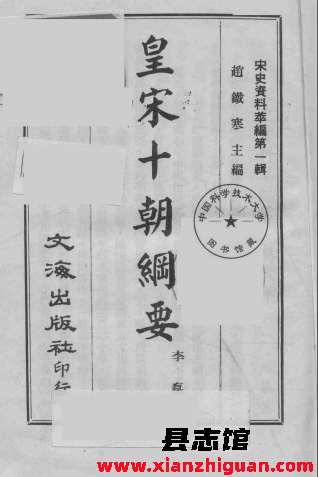 宋史資料萃編第一輯
趙鐵寒主編
皇宋十朝綱要
李
文海出版社印行
中国科学技术大学
图书馆藏
县志馆
www.xianzhiguan.com